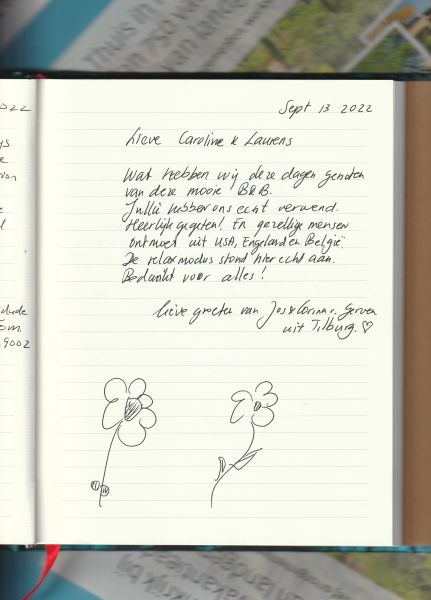 Thuis in
Sept 13 2022
Lieve Caroline & Laurens
Wat hebben wij deze dagen genoten
van deze mooie B&B.
Jullie hebben ons echt verwend.
Heerlijk gegeten! En gezellige mensen
ontmoet uit USA, Engeland en België
De relaxmodus stond hier echt aan.
Bedankt voor alles!
Lieve groeten van Jos & Corinn v. Gerven
uit Tilburg. ♡
022
9002